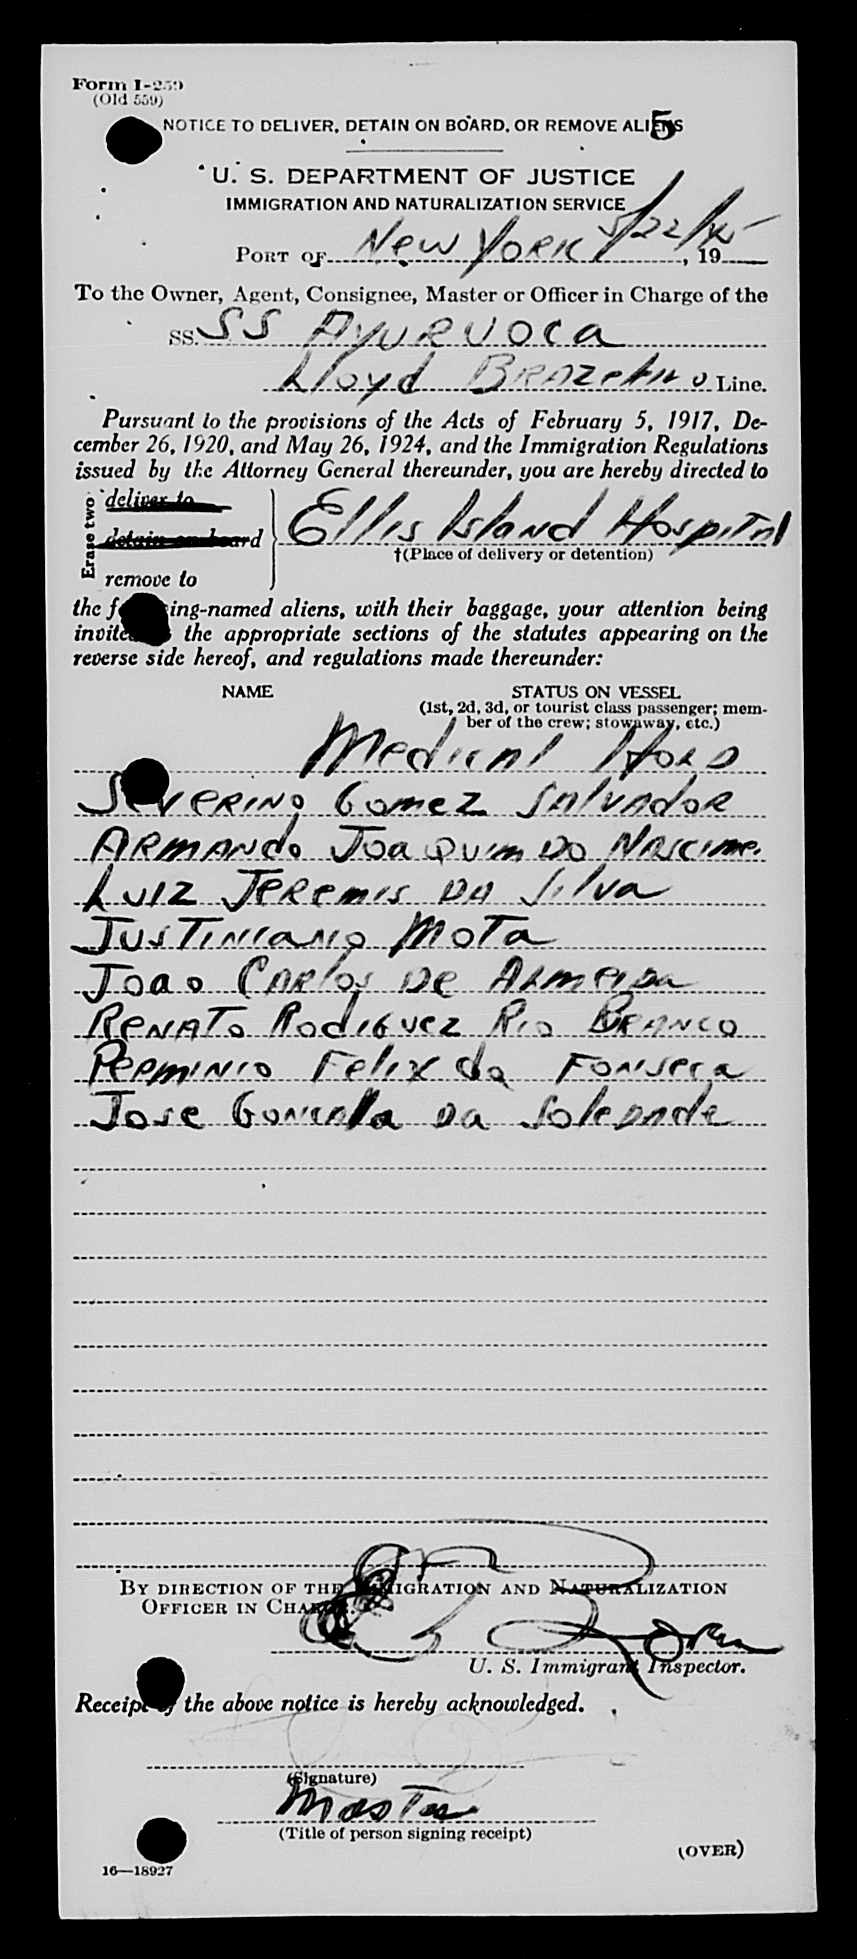 Form I-259
(Old 559)
NOTICE TO DELIVER, DETAIN ON BOARD, OR REMOVE ALIENS
5
U. S. DEPARTMENT OF JUSTICE
IMMIGRATION AND NATURALIZATION SERVICE
PORT OF New York 5/22/45, 19
To the Owner, Agent, Consignee, Master or Officer in Charge of the
SS. SS Ayuruoca
Lloyd Line.
Pursuant to the provisions of the Acts of February 5, 1917, De-
cember 26, 1920, and May 26, 1924, and the Immigration Regulations
issued by the Attorney General thereunder, you are hereby directed to
Erase two
deliver to
detain on board
Ellis Island Hospital
†(Place of delivery or detention)
remove to
the following-named aliens, with their baggage, your attention being
invited the appropriate sections of the statutes appearing on the
reverse side hereof, and regulations made thereunder:
NAME STATUS ON VESSEL
(1st, 2d, 3d, or tourist class passenger; mem-
ber of the crew; stowaway, etc.)
Medical Hold
Severino Gomez Salvador
Armando Joaquim Do Nascime.
Luiz Jeremis Da Silva
Justiniano Mota
Joao Carlos De Almeida
Renato Rodiguez Rio Branco
Perminio Felix da Fonseca
Jose Goncala da Soledade
BY DIRECTION OF THE IMMIGRATION AND NATURALIZATION
OFFICER IN CHARGE.
U. S. Immigrant Inspector.
Receipt of the above notice is hereby acknowledged.
(Signature)
Master
(Title of person signing receipt)
(OVER)
16—18927